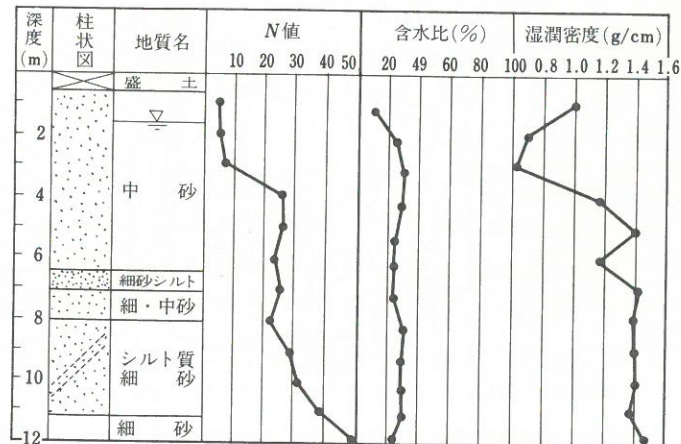 深度(m) 柱状図 地質名 N値 含水比(%) 湿潤密度(g/cm)
10 20 30 40 50 20 49 60 80 100 0.8 1.0 1.2 1.4 1.6
盛 土
2
中 砂
4
6
細砂シルト
細・中砂
8
シルト質
細 砂
10
細 砂
12